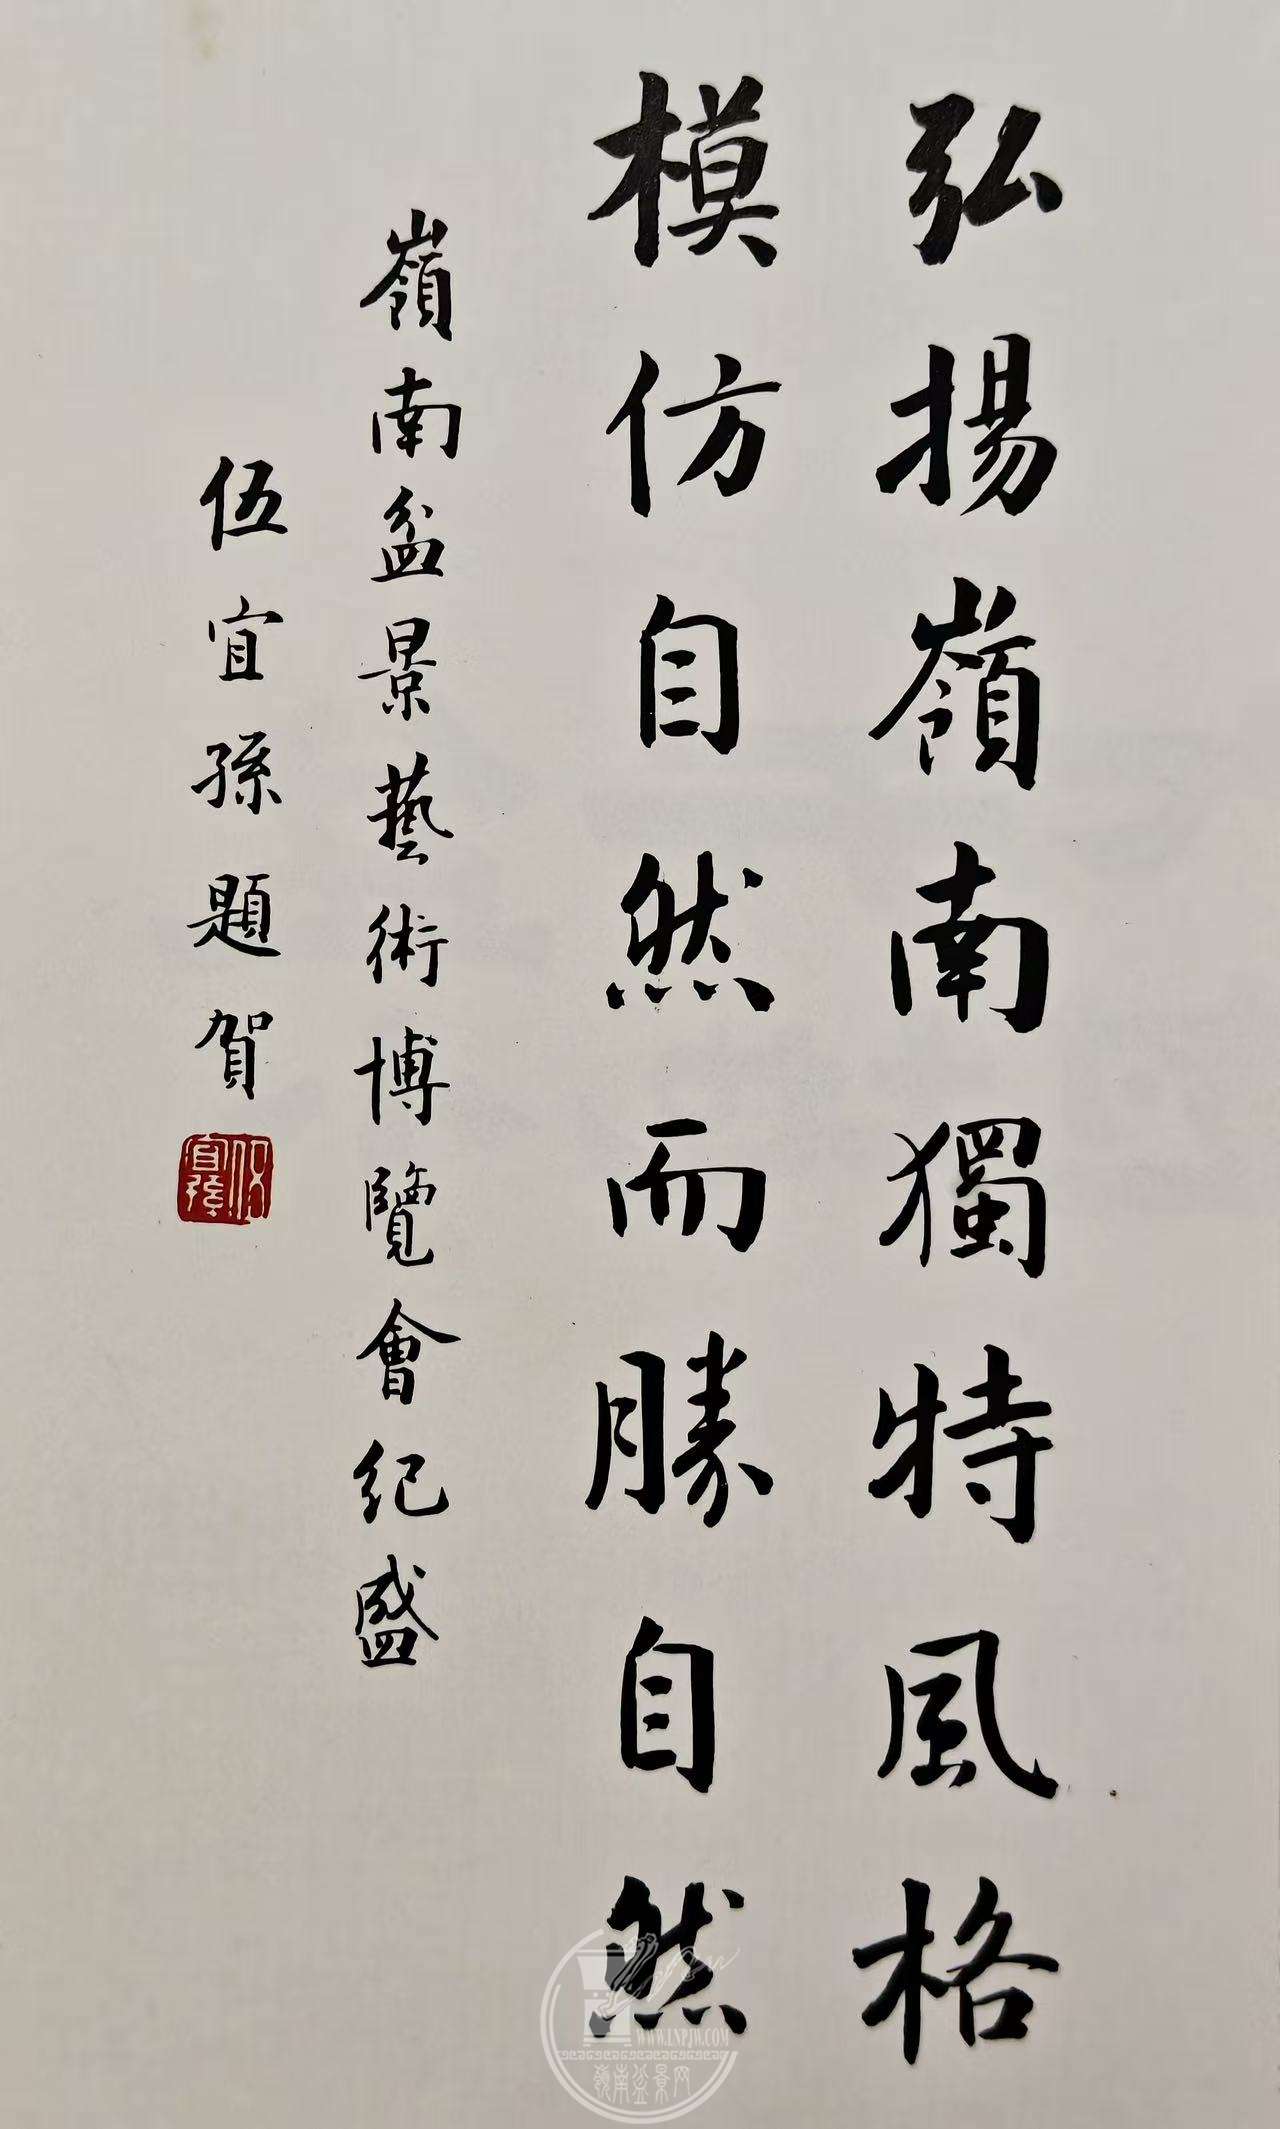 弘揚嶺南獨特風格
模仿自然而勝自然
嶺南盆景藝術博覽會紀盛
伍宜孫題賀
伍宜孫
WWW.LNPJW.COM
嶺南盆景网